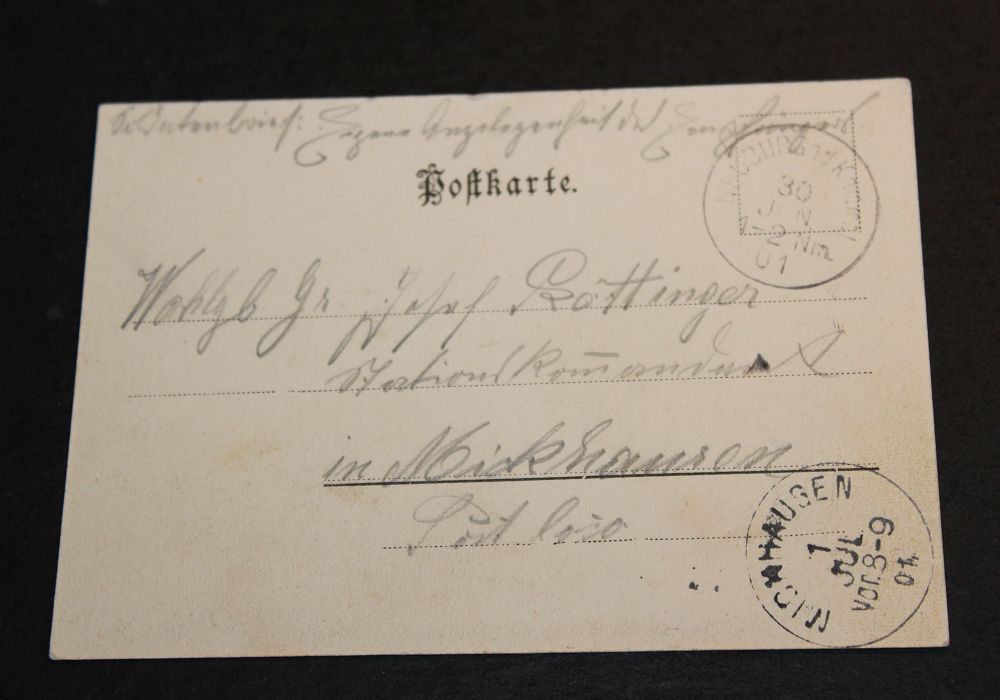 Soldatenbrief: Eigene Angelegenheit des Empfängers
Postkarte.
30
JUN
1-2 Nm.
01
Wohlgb Hr Josef Röttinger
Stationskommandant
in Mickhausen
Post loco
MICKHAUSEN
1
JUL
Vor. 8-9
01.